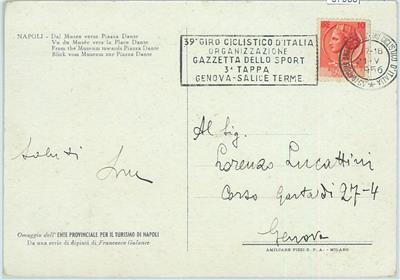 NAPOLI - Dal Museo verso Piazza Dante
Vu du Musée vers la Place Dante
From the Museum towards Piazza Dante
Blick vom Museum zur Piazza Dante
39° GIRO CICLISTICO D'ITALIA
ORGANIZZAZIONE
GAZZETTA DELLO SPORT
3ª TAPPA
GENOVA-SALICE TERME
1956
Saluti
Al Sig.
Lorenzo Lucattini
Corso Gastaldi 27-4
Genova
Omaggio dell'ENTE PROVINCIALE PER IL TURISMO DI NAPOLI
Da una serie di dipinti di Francesco Galante
AMILCARE PIZZI S.P.A. - MILANO